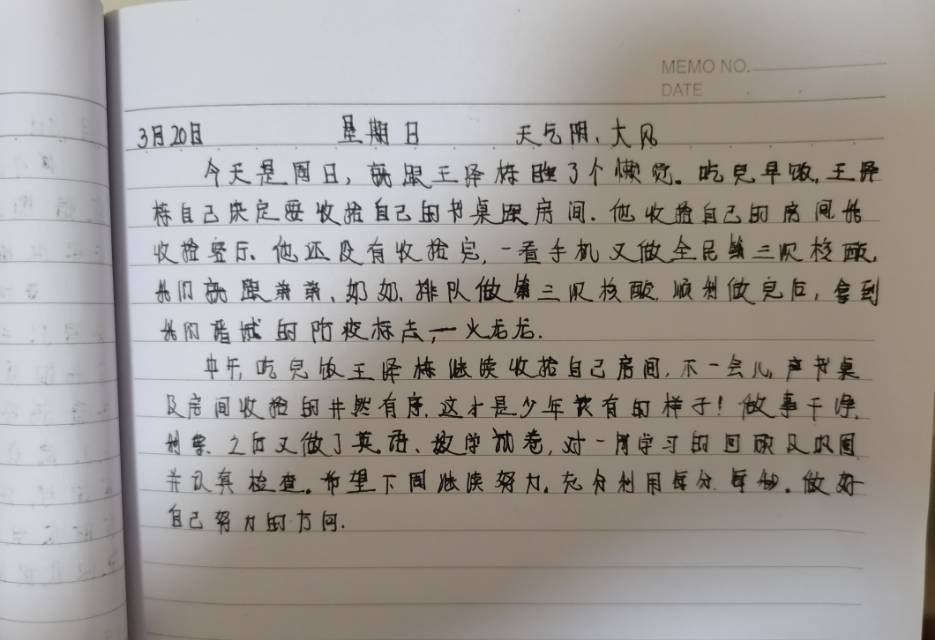 MEMO NO.
DATE
3月20日 星期日 天气阴、大风
今天是周日，就跟王泽栋睡了个懒觉。吃完早饭，王泽
栋自己决定要收捡自己的书桌跟房间。他收捡自己的房间我
收捡客厅。他还没有收捡完，一看手机又做全民第三次核酸，
我们就跟爷爷、奶奶、排队做第三次核酸，顺利做完后，拿到
我们晋城的防疫标志一火龙龙.
中午，吃完饭王泽栋继续收捡自己房间，不一会儿，声书桌
及房间收捡的井然有序，这才是少年该有的样子！做事干净、
利索、之后又做了英语、数学试卷，对一周学习的回顾及巩固
并认真检查。希望下周继续努力，充分利用每分、每秒。做好
自己努力的方向.